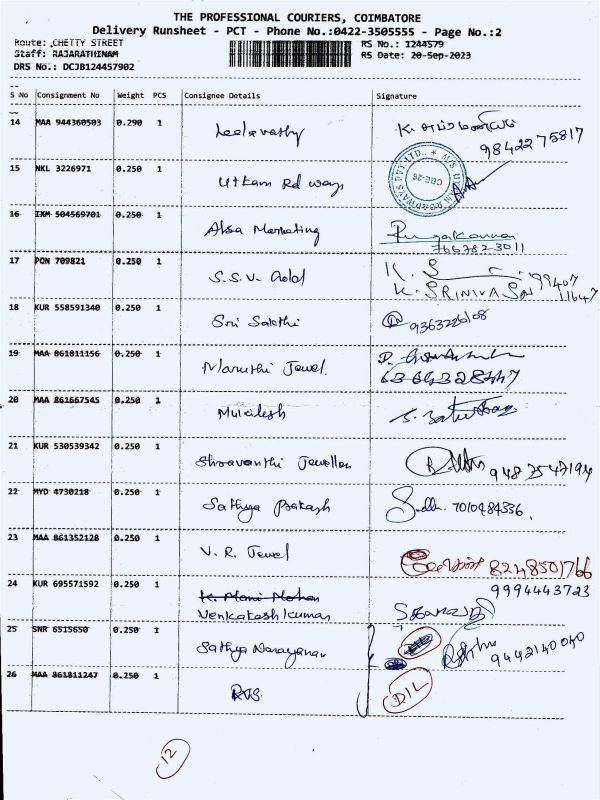 THE PROFESSIONAL COURIERS, COIMBATORE
Delivery Runsheet - PCT - Phone No.:0422-3505555 - Page No.:2
Route: CHETTY STREET RS No.: 1244579
Staff: RAJARATHINAM RS Date: 20-Sep-2023
DRS No.: DCJB124457902
S No Consignment No Weight PCS Consignee Details Signature
14 MAA 944360503 0.290 1 Leelavathy
9842275817
15 NKL 3226971 0.250 1 Uttam Rd ways
CBE-26
16 IXM 504569701 0.250 1 Alsa Marketing
7667823011
17 PON 709821 0.250 1 S.S.V. Gold K. S
K. SRINIVASAN
18 KUR 558591340 0.250 1 Sri Sakthi 9363226108
19 MAA 861011156 0.250 1 Maruthi Jewel
20 MAA 861667545 0.250 1 Mukilesh
21 KUR 530539342 0.250 1 Shravanthi Jewellers
22 MYD 4730218 0.250 1 Sathya Prakash 7010484336
23 MAA 861352128 0.250 1 V. R. Jewel 8248501766
24 KUR 695571592 0.250 1 K. Mani Mohan 9994443723
Venkatesh kumar
25 SNR 6515650 0.250 1 Sathya Narayanan 9442140040
26 MAA 861811247 0.250 1 RVS DIL
12